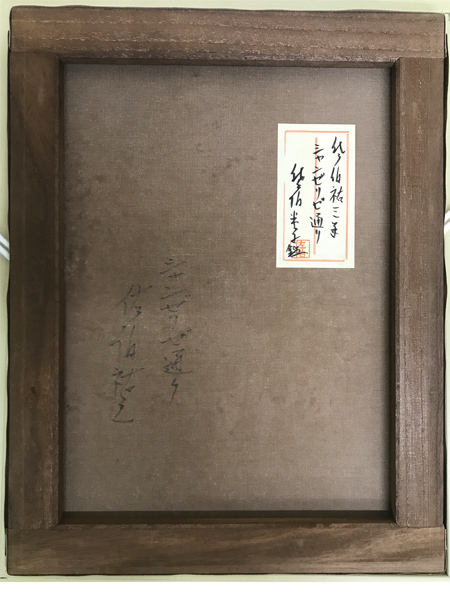 佐伯祐三筆
シャンゼリゼ通り
佐伯米子鑑
シャンゼリゼ通り
佐伯祐三